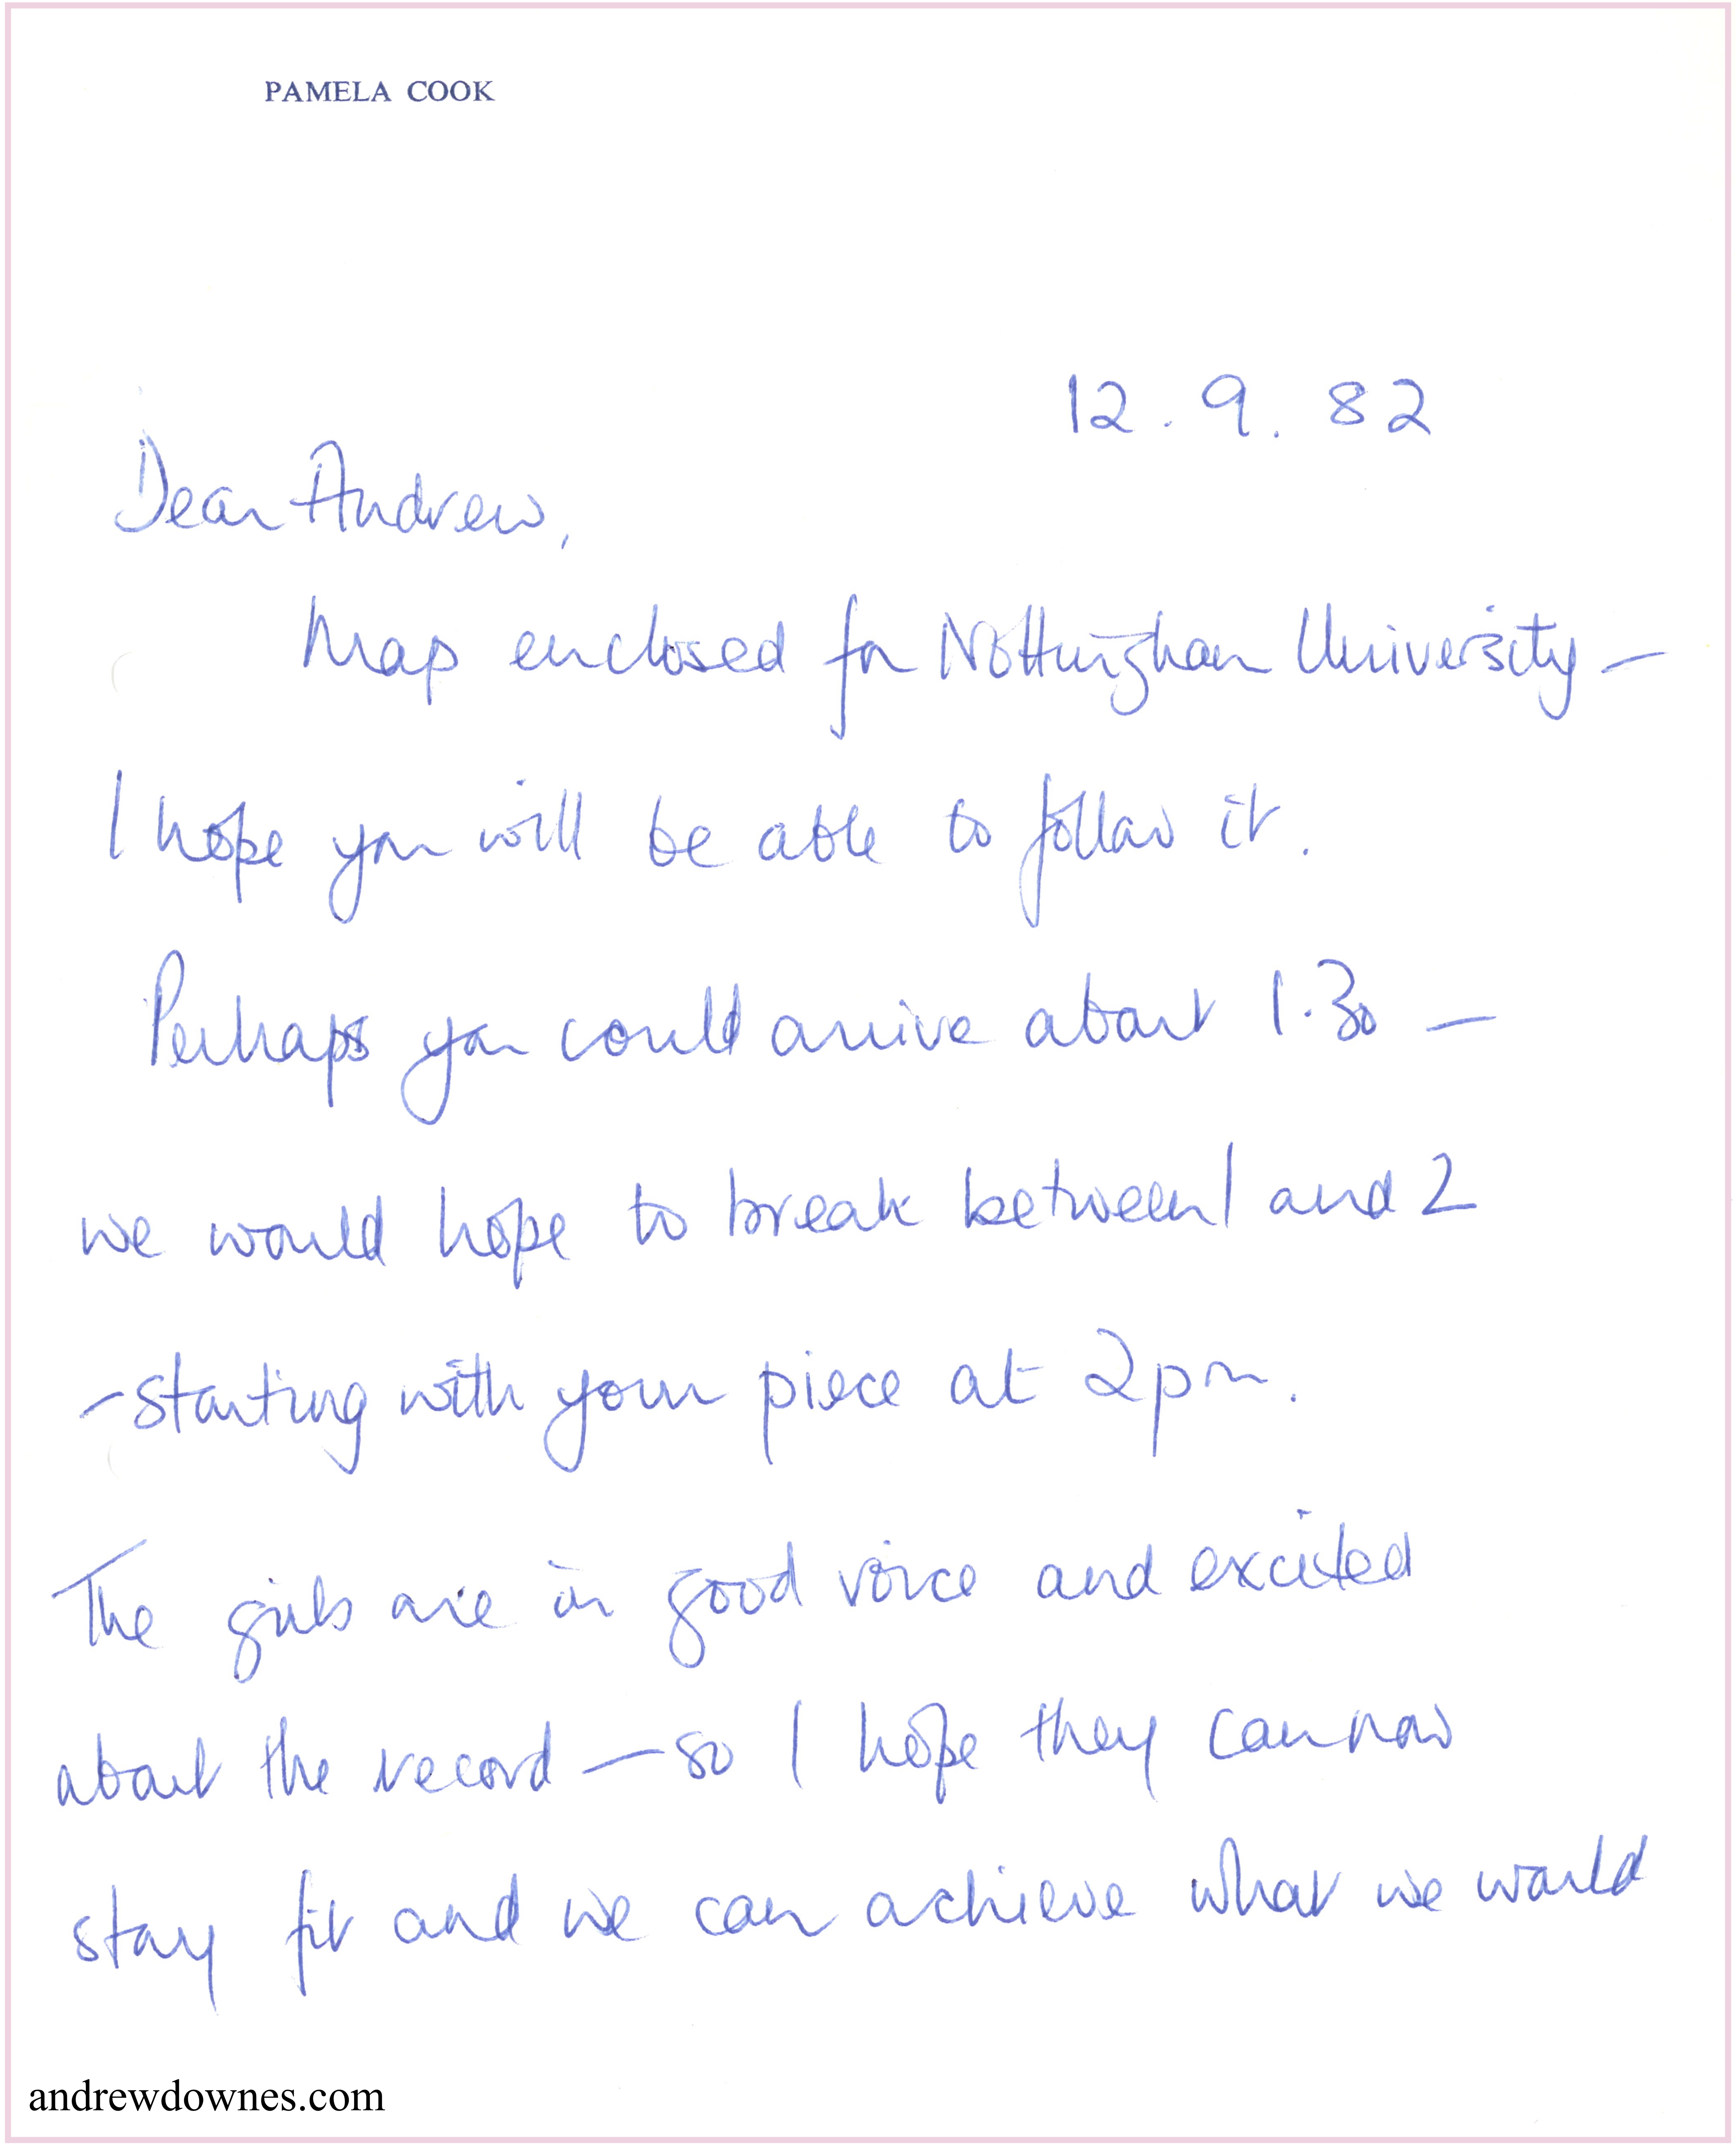 PAMELA COOK
12.9.82
Dear Andrew,
Map enclosed for Nottingham University –
I hope you will be able to follow it.
Perhaps you could arrive about 1.30 –
we would hope to break between 1 and 2
– starting with your piece at 2pm.
The girls are in good voice and excited
about the record – so I hope they can now
stay fit and we can achieve what we would
andrewdownes.com